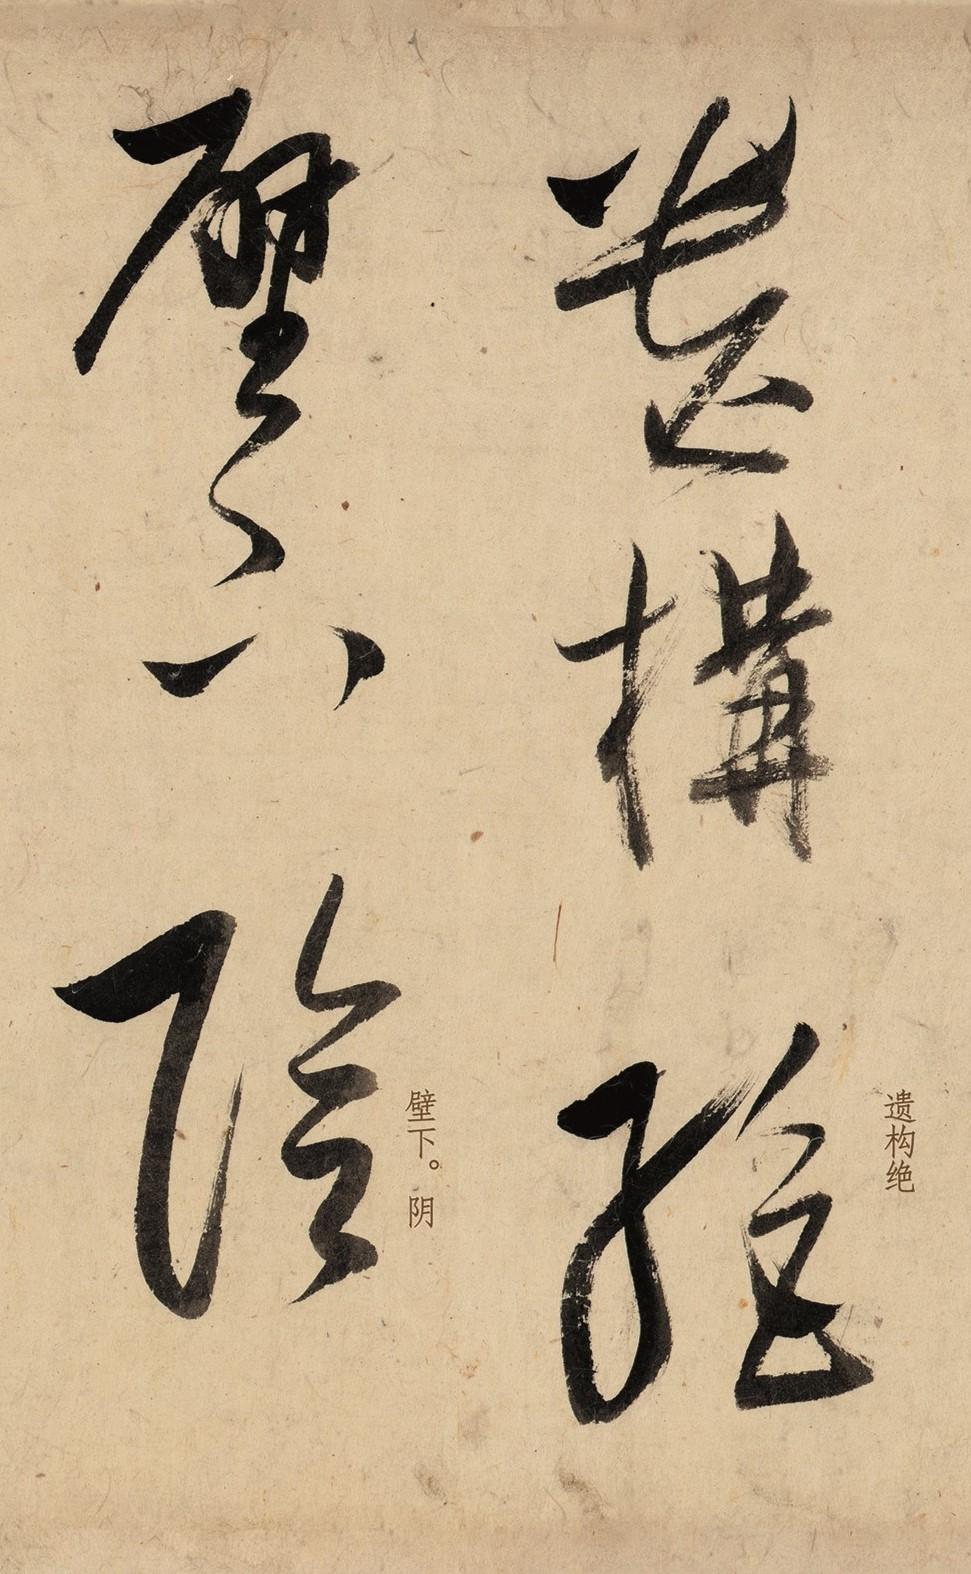 遺構絶
遗构绝
壁下陰
壁下。阴